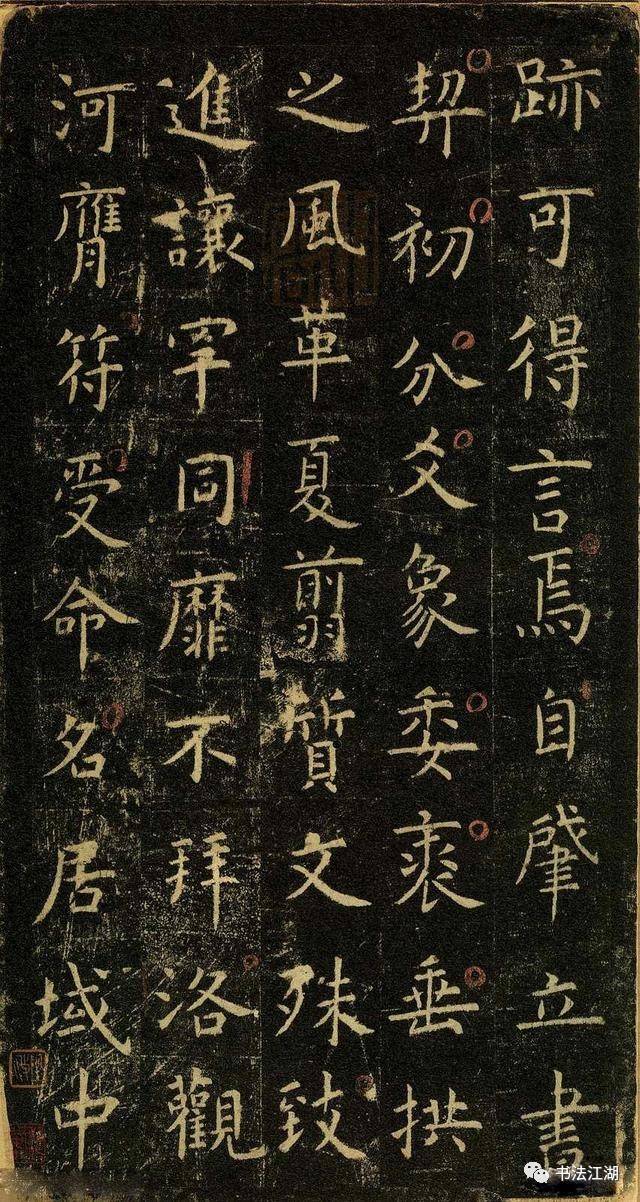 跡可得言焉自肇立書
契初分爻象委裘垂拱
之風革夏翦質文殊致
進讓罕同靡不拜洛觀
河膺符受命名居域中
书法江湖